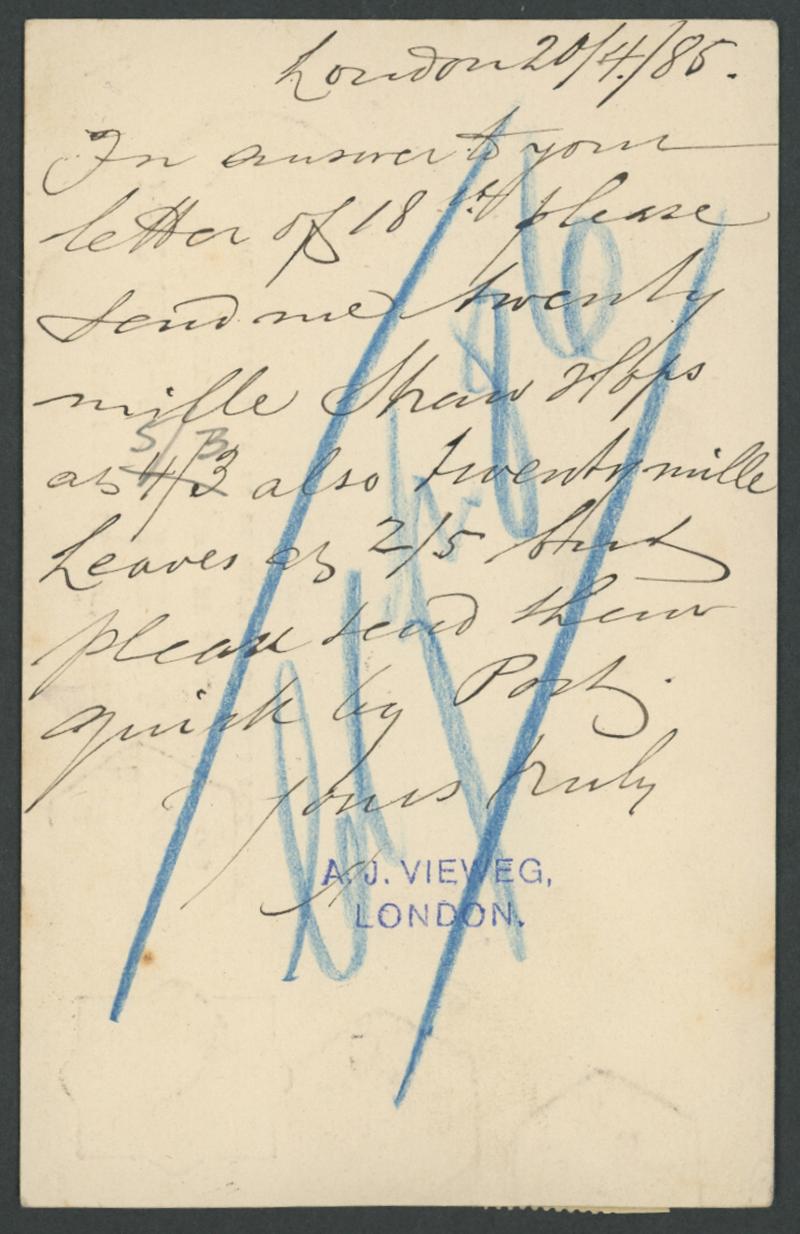 London 20/4/86.
In answer to your
letter of 18th please
send me twenty
mille Straw Hops
5/3
at 4/3 also twenty mille
Leaves at 2/5 but
please send them
quick by Post.
Yours truly
A. J. VIEWEG,
LONDON.